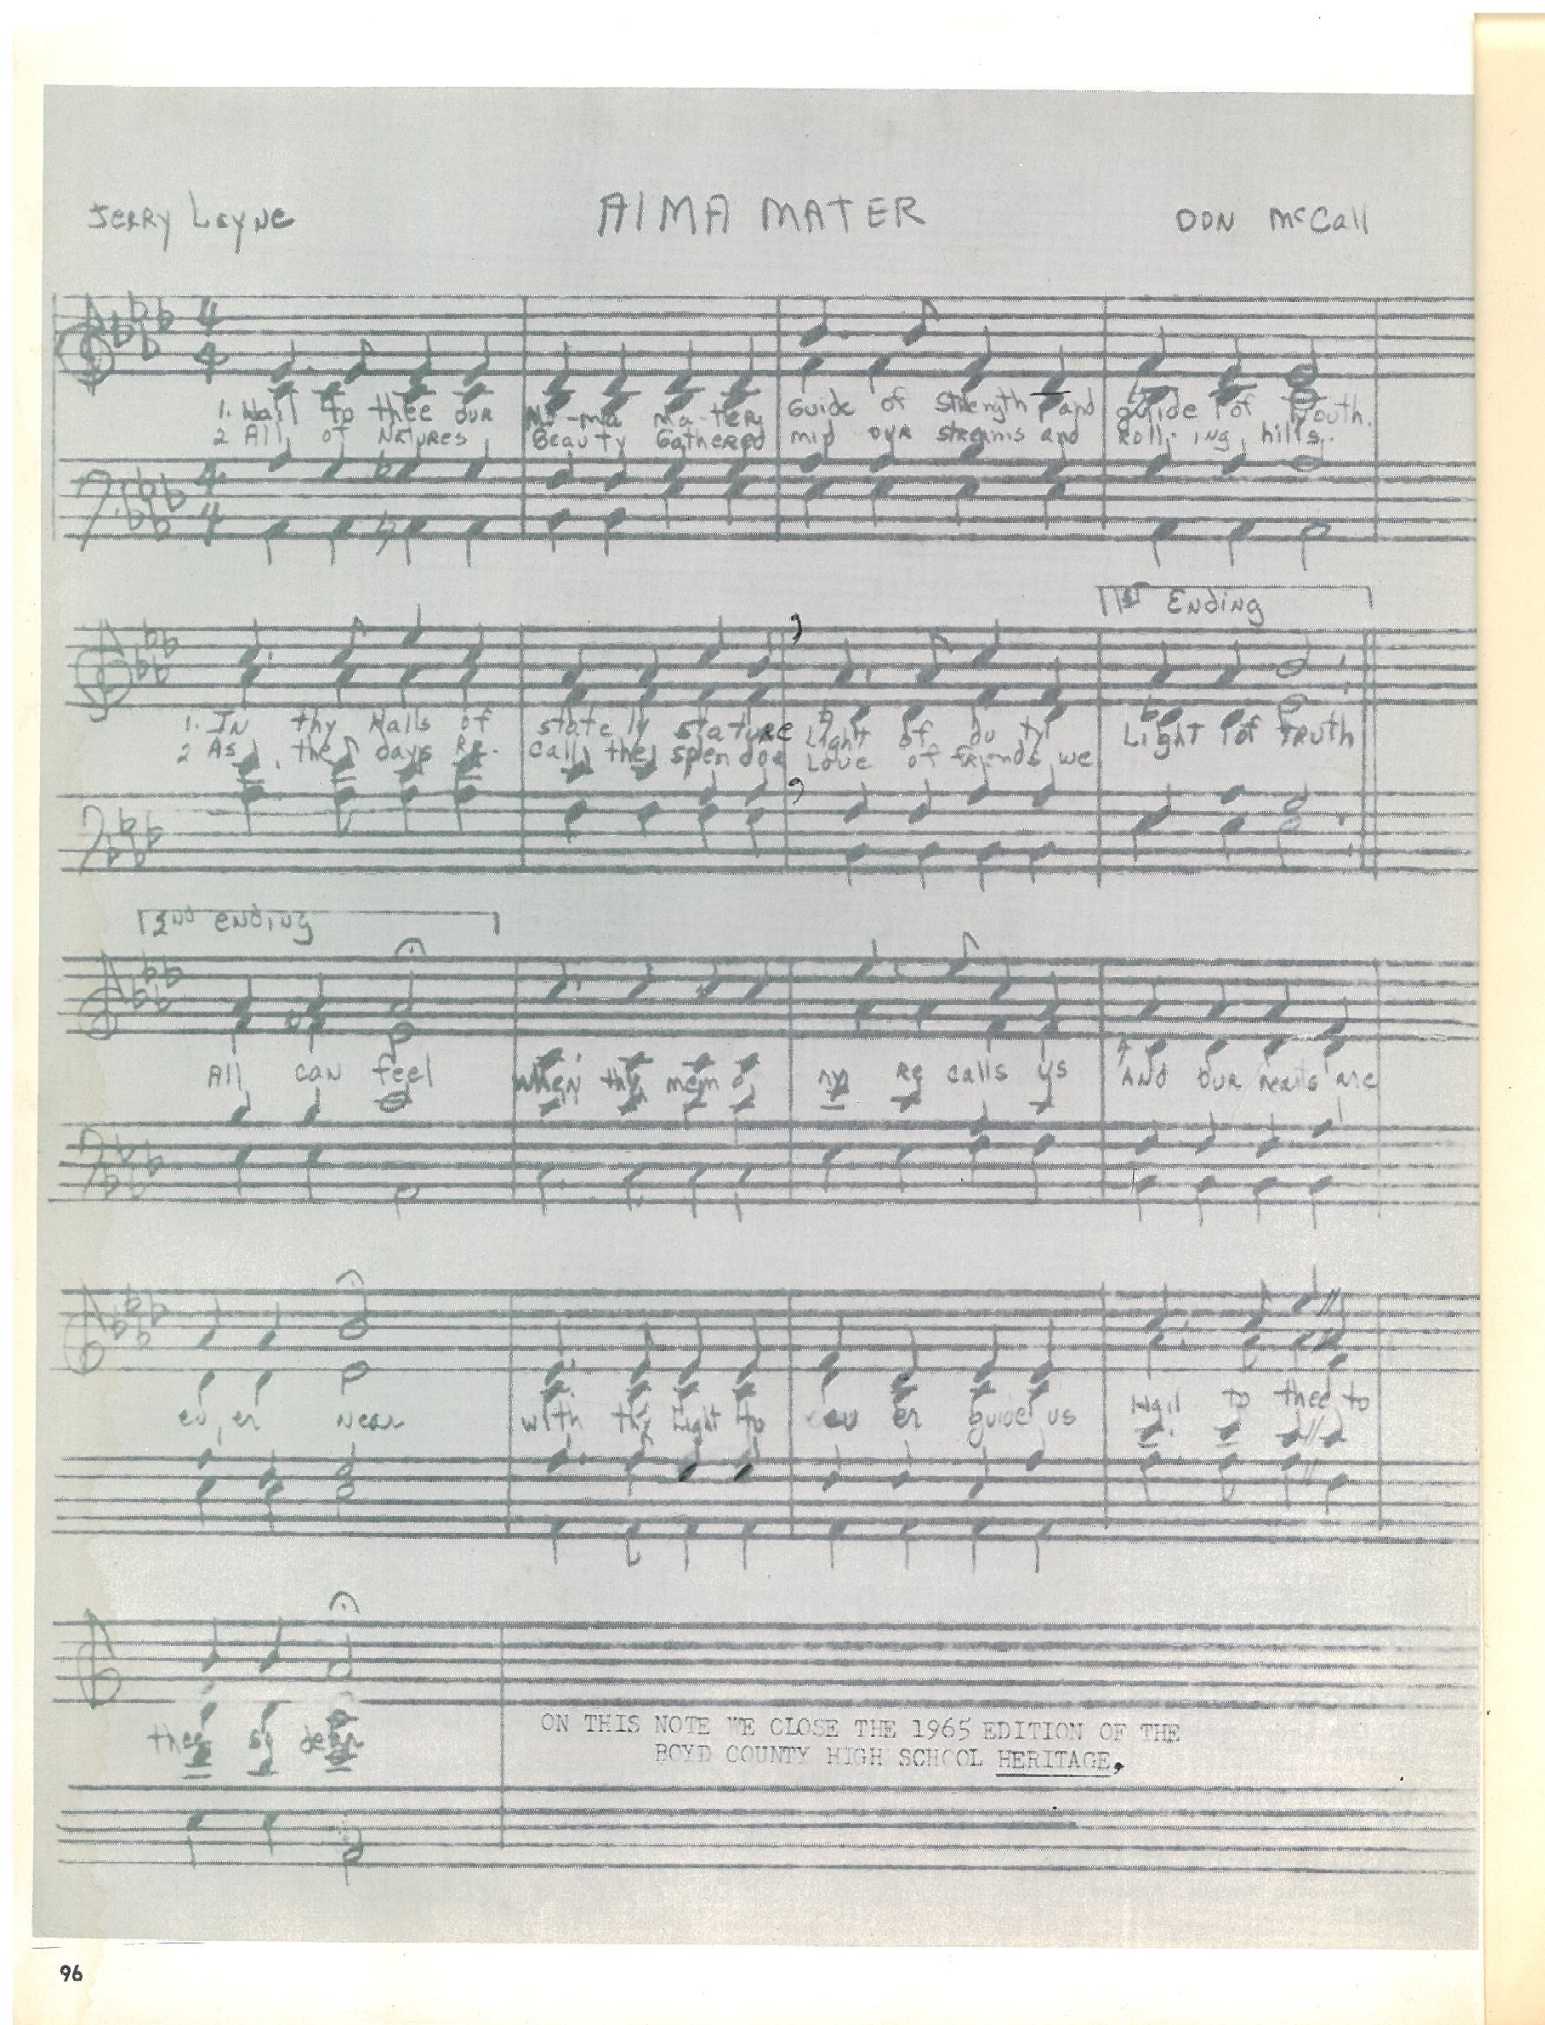 Jerry Layne ALMA MATER DON McCall
4 4
1. Hail to thee our Al-ma ma-ter Guide of Strength and guide of youth.
2 All of Natures Beauty Gathered mid our streams and Roll-ing hills.
4 4
1st Ending
1. IN thy Halls of state ly stature Light of du ty Light of TRUTH
2 As the days Re- call the splendor Love of friends we
2nd ending
All can feel When thy mem o ry Re calls us And our hearts are
ev er Near with thy Light to ev er guide us Hail to thee to
thee so dear
ON THIS NOTE WE CLOSE THE 1965 EDITION OF THE
BOYD COUNTY HIGH SCHOOL HERITAGE.
96